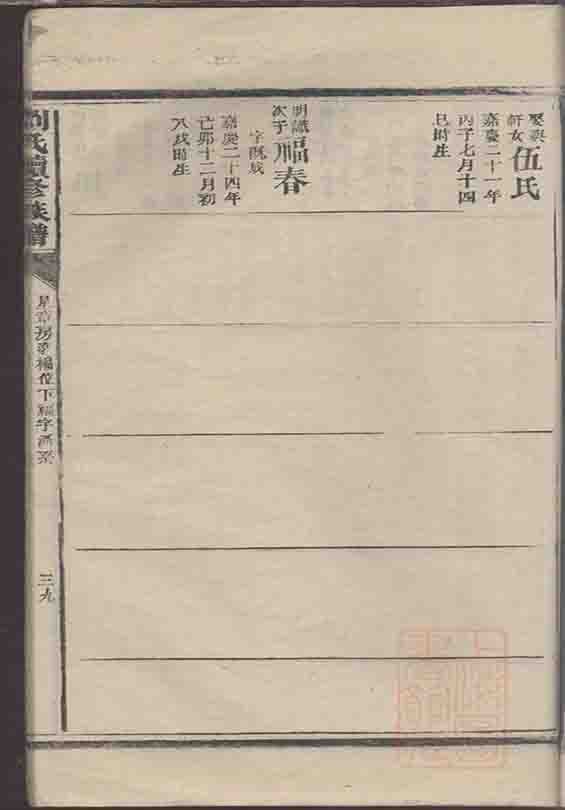 娶
軒女
伍氏
嘉慶二十一年
丙子七月十四
巳時生
明識
次子
福春
字既成
嘉慶二十四年
己卯十二月初
八戌時生
劉氏續修族譜
房
楊位下福字派系
三九